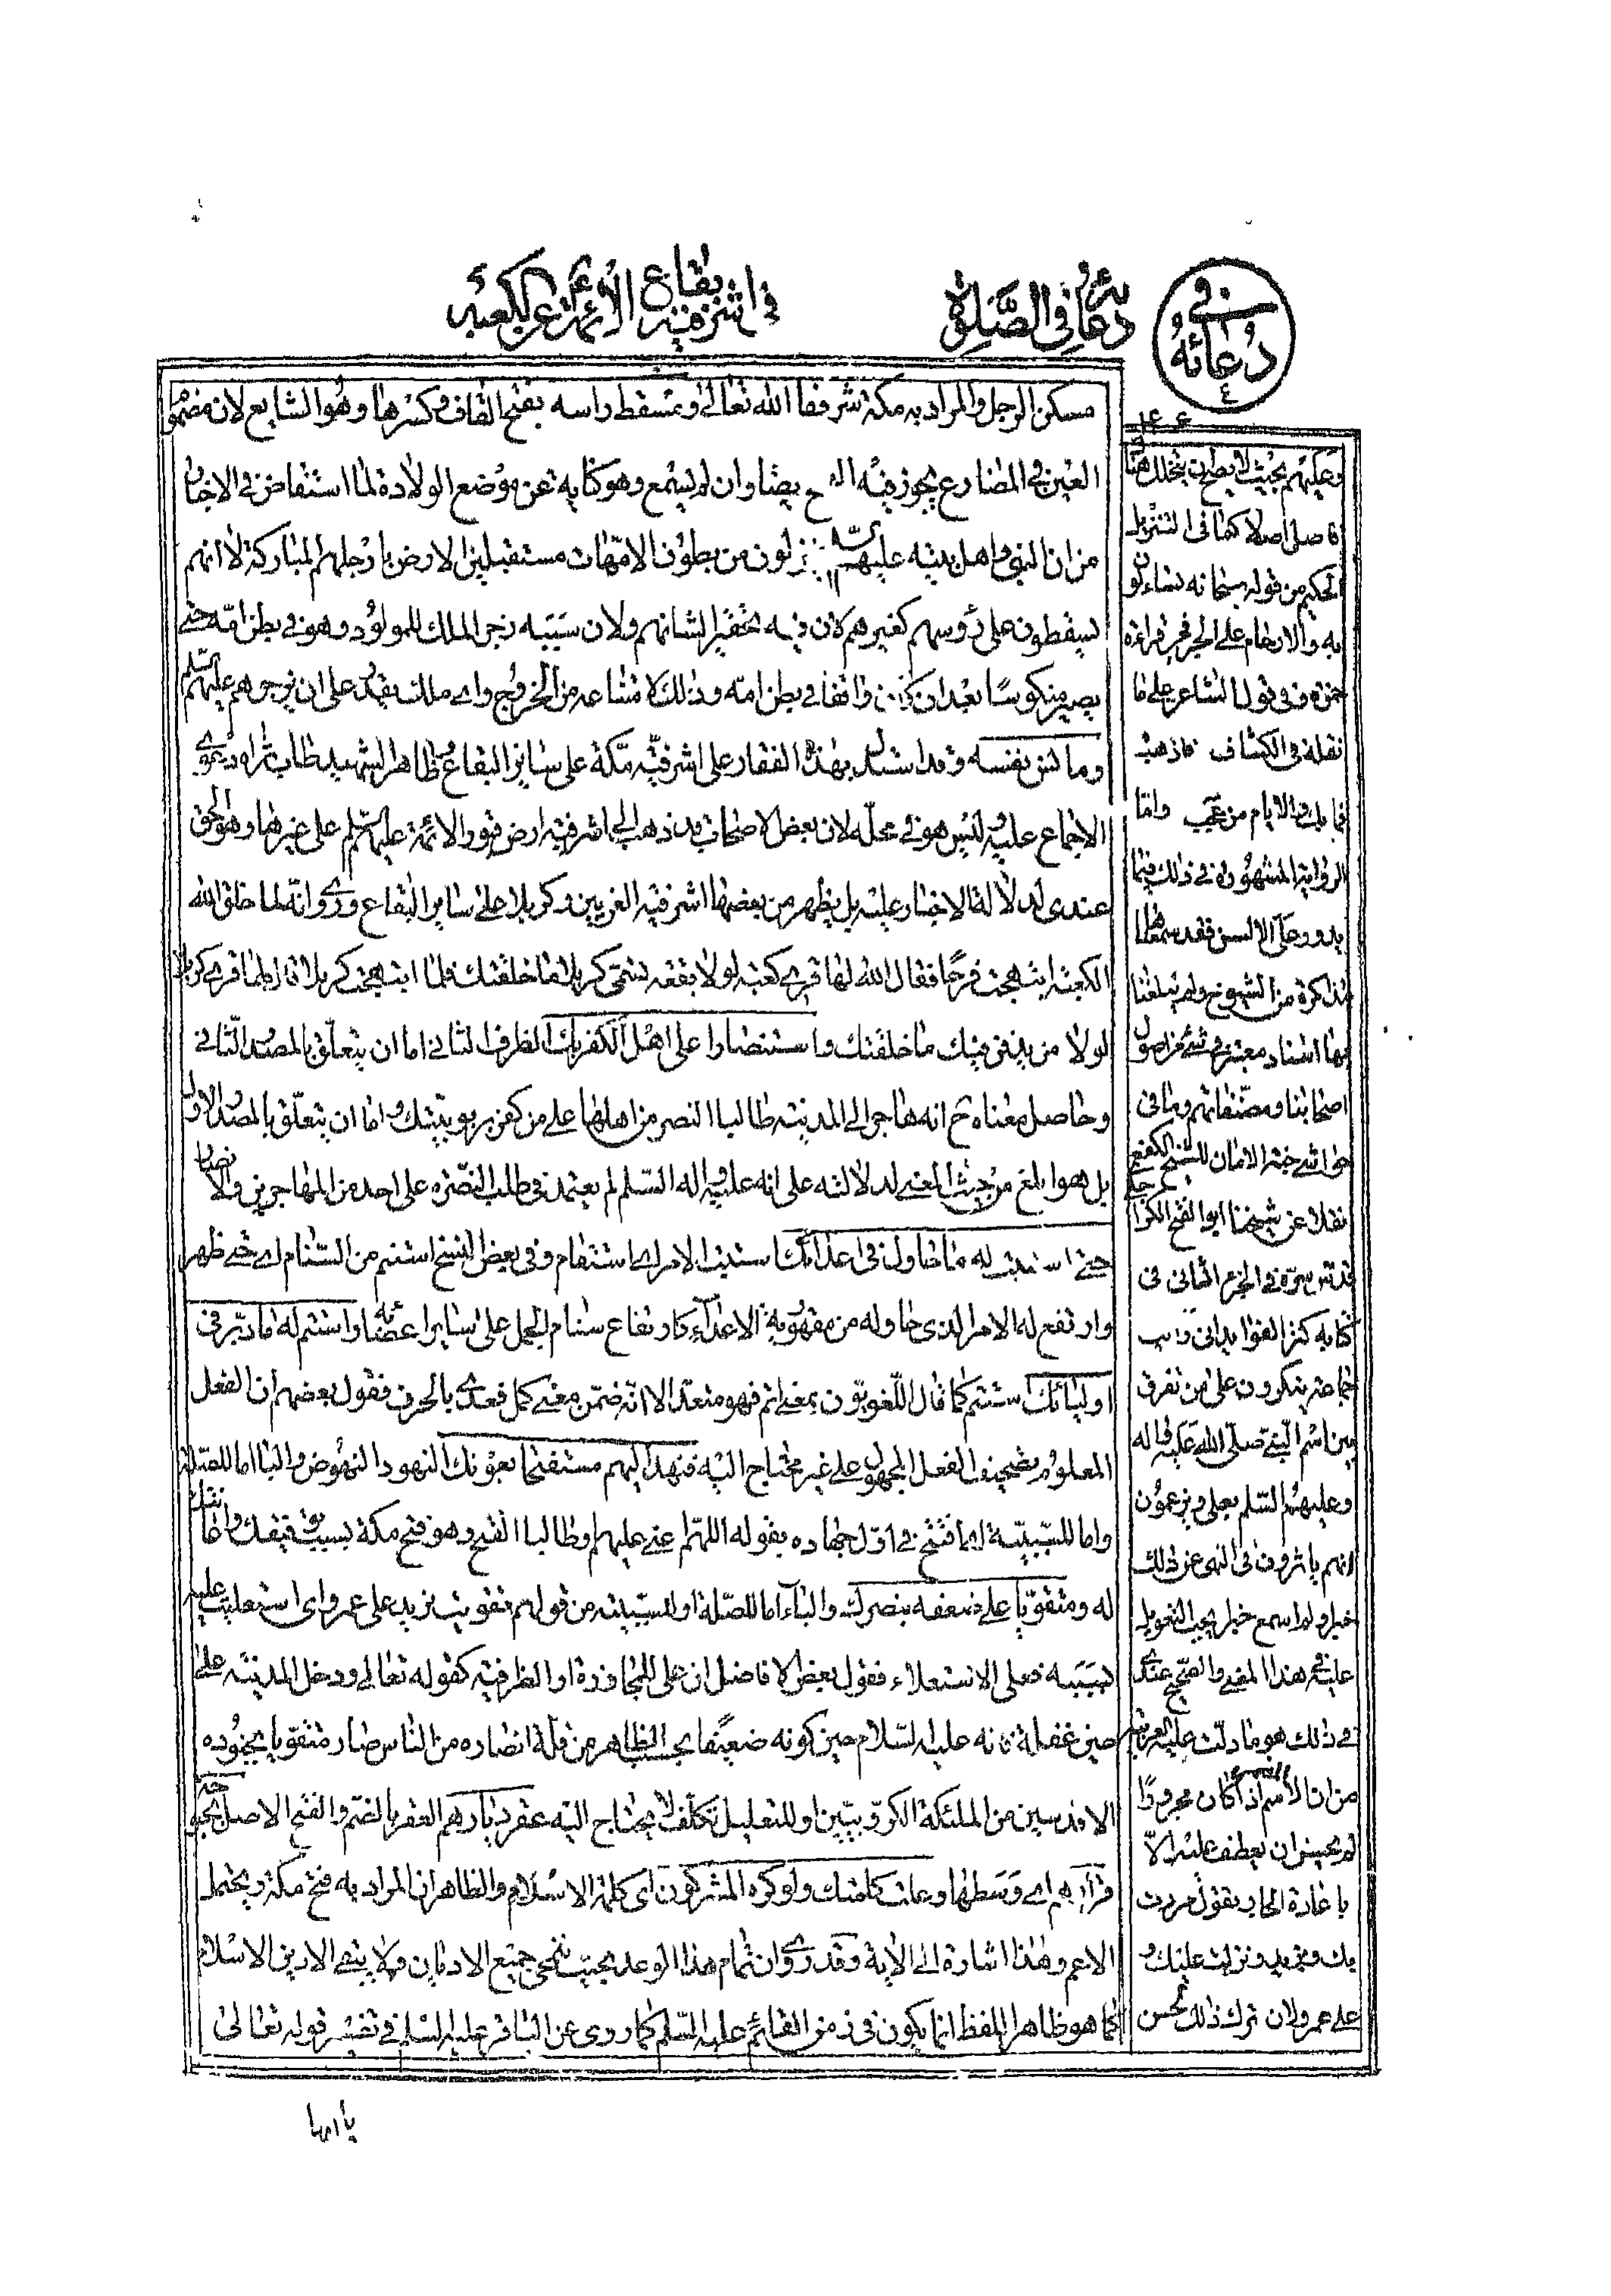 في دعائه ع
دعائه في الصلاة
في اشرفية بقاع الأئمة على الكعبة
مسكن الرجل والمراد به مكة شرفها الله تعالى ومسقط راسه بفتح القاف وكسرها وهو الشايع لان مضموم
العين في المضارع يجوز فيه ايضا وان لم يسمع وهو كناية عن موضع الولادة لما استفاض في الاخبار
من ان النبي واهل بيته عليهم ينزلون من بطون الامهات مستقبلين الارض بارجلهم المباركة لا انهم
يسقطون على رؤوسهم كغيرهم لان فيه تحقيرا لشانهم ولان سببه زجر الملك للمولود وهو في بطن امه حتى
يصير منكوسا بعد ان كان واقفا في بطن امه وذلك لامتناعه من الخروج واي ملك يقدر على ان يزجرهم عليهم السلم
ومانس نفسه وقد استدل بهذه الفقار على اشرفية مكة على ساير البقاع وظاهر الشهيد طاب ثراه دعوى
الاجماع عليه وليس هو في محله لان بعض الاصحاب قد ذهب الى اشرفية ارض قبور الائمة عليهم السلم على غيرها وهو الحق
عندي لدلالة الاخبار عليه بل يظهر من بعضها اشرفية الغريين وكربلا على ساير البقاع وروى انه لما خلق الله
الكعبة ابتهجت فرحا فقال الله لها قري كعبة لولا بقعة تسمى كربلا لما خلقتك فلما ابتهجت كربلا قال لها قري كربلا
لولا من يدفن فيك ما خلقتك واستنصارا على اهل الكفر بك الظرف الثاني اما ان يتعلق بالمصدر الثاني
وحاصل معناه ح انه هاجر الى المدينة طالبا النصر من اهلها على من كفر بربوبيتك واما ان يتعلق بالمصدر الاول
بل هو ابلغ من حيث المعنى لدلالته على انه عليه واله السلم لم يعتمد في طلب النصرة على احد من المهاجرين والانصار
حتى استتب له ما حاول في اعدائك استتب الامر اي استقام وفي بعض النسخ استنم من السنام اي حتى ظهر
وارتفع له الامر الذي حاوله من مقهورية الاعداء كارتفاع سنام الجمل على ساير اعضائه واستتم له ما دبر في
اوليائك استتم كما قال اللغويون بمعنى اتم فهو متعد الا انه ضمن معنى كمل فعدى بالحرف فقول بعضهم ان الفعل
المعلوم بمعنى الفعل المجهول على غير محتاج اليه فنهد اليهم مستفتحا بعونك النهود النهوض والبا اما للصلة
واما للسببية اي افتتح في اول جهاده بقوله اللهم اعني عليهم او طالبا الفتح وهو فتح مكة بسبب توفيقك واعانتك
له ومتقويا على ضعفه بنصرك والباء اما للصلة او للسببية من قولهم تقويت بزيد على عمرو اي استعليت عليه
بسببه فعلى الاستعلاء فقول بعض الافاضل ان على للمجاوزة او الظرفية كقوله تعالى ودخل المدينة على
حين غفلة فانه عليه السلام حين كونه ضعيفا بحسب الظاهر من قلة انصاره من الناس صار متقويا بجنوده
الاقدسين من الملئكة الكروبيين او للتعليل تكلف لا يحتاج اليه عقر ديارهم العقر بالضم والفتح الاصل بحبوحة
قرارهم اي وسطها وعلت كلمتك ولو كره المشركون اي كلمة الاسلام والظاهر ان المراد به فتح مكة ويحتمل
الاعم وهذا اشارة الى الاية وقد روى ان تمام هذا الوعد بحيث ينمحي جميع الاديان ولا يبقى الا دين الاسلام
كما هو ظاهر اللفظ انما يكون في زمن القائم عليه السلم كما روى عن الباقر عليه السلم في تفسير قوله تعالى
وعليهم بحيث لا يصح تخلل هنا
فاصل اصلا كما في التنزيل
الحكيم من قوله سبحانه تساءلون
به والارحام على الجر في قراءة
حمزة وفي قول الشاعر على ما
نقله في الكشاف فاذهب
فما بك والايام من عجب واما
الرواية المشهورة في ذلك فيما
يدور على الالسن فقد سمعناها
مذاكرة من الشيوخ ولم يبلغنا
بها اسناد معتبر في شيء من اصول
اصحابنا ومصنفاتهم وما في
حواشي جنة الامان للشيخ الكفعمي
نقلا عن شيخنا ابو الفتح الكراجكي
قدس سره في الجزء الثاني في
كتابه كنز الفوائد اني رايت
جماعة ينكرون على من تفرق
بين اسم النبي صلى الله عليه واله
وعليهم السلم بعلى ويزعمون
انهم ياثرون في النهي عن ذلك
خبرا ولم اسمع خبرا يجب التعويل
عليه في هذا المعنى والصحيح عندي
في ذلك هو ما دلت عليه العربية
من ان الاسم اذا كان مجرورا
لم يحسن ان يعطف عليه الا
باعادة الجار يقول مررت
بك وبزيد ونزلت عليك و
على عمرو لان ترك ذلك لحن
يا ايها